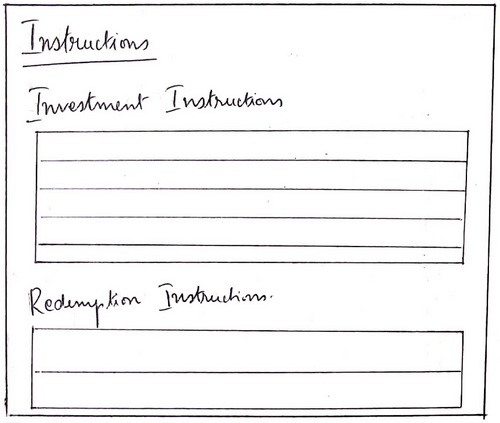 Instructions
Investment Instructions
Redemption Instructions.